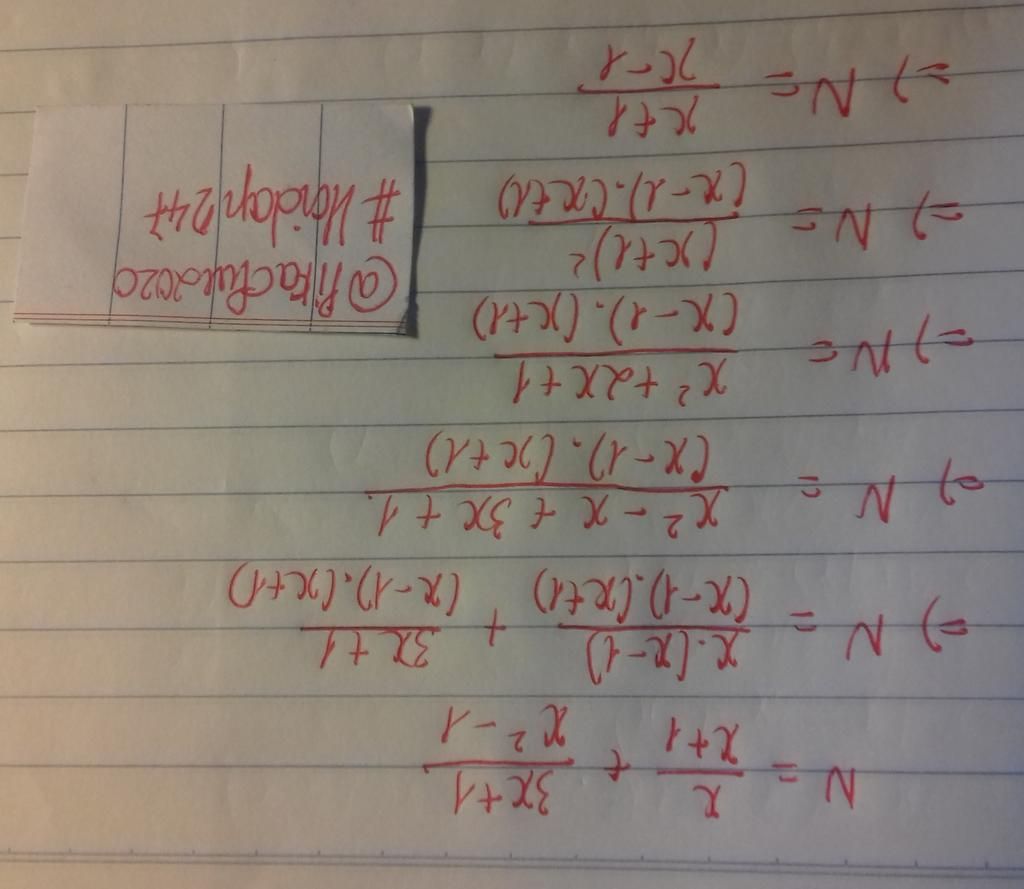 N = x/(x+1) + (3x+1)/(x²-1)
=) N = x.(x-1)/(x-1).(x+1) + (3x+1)/(x-1).(x+1)
=) N = (x² - x + 3x + 1)/(x-1).(x+1)
=) N = (x² + 2x + 1)/(x-1).(x+1)
=) N = (x+1)²/(x-1).(x+1)
=) N = (x+1)/(x-1)
@pikachue2020
#Hoidap247